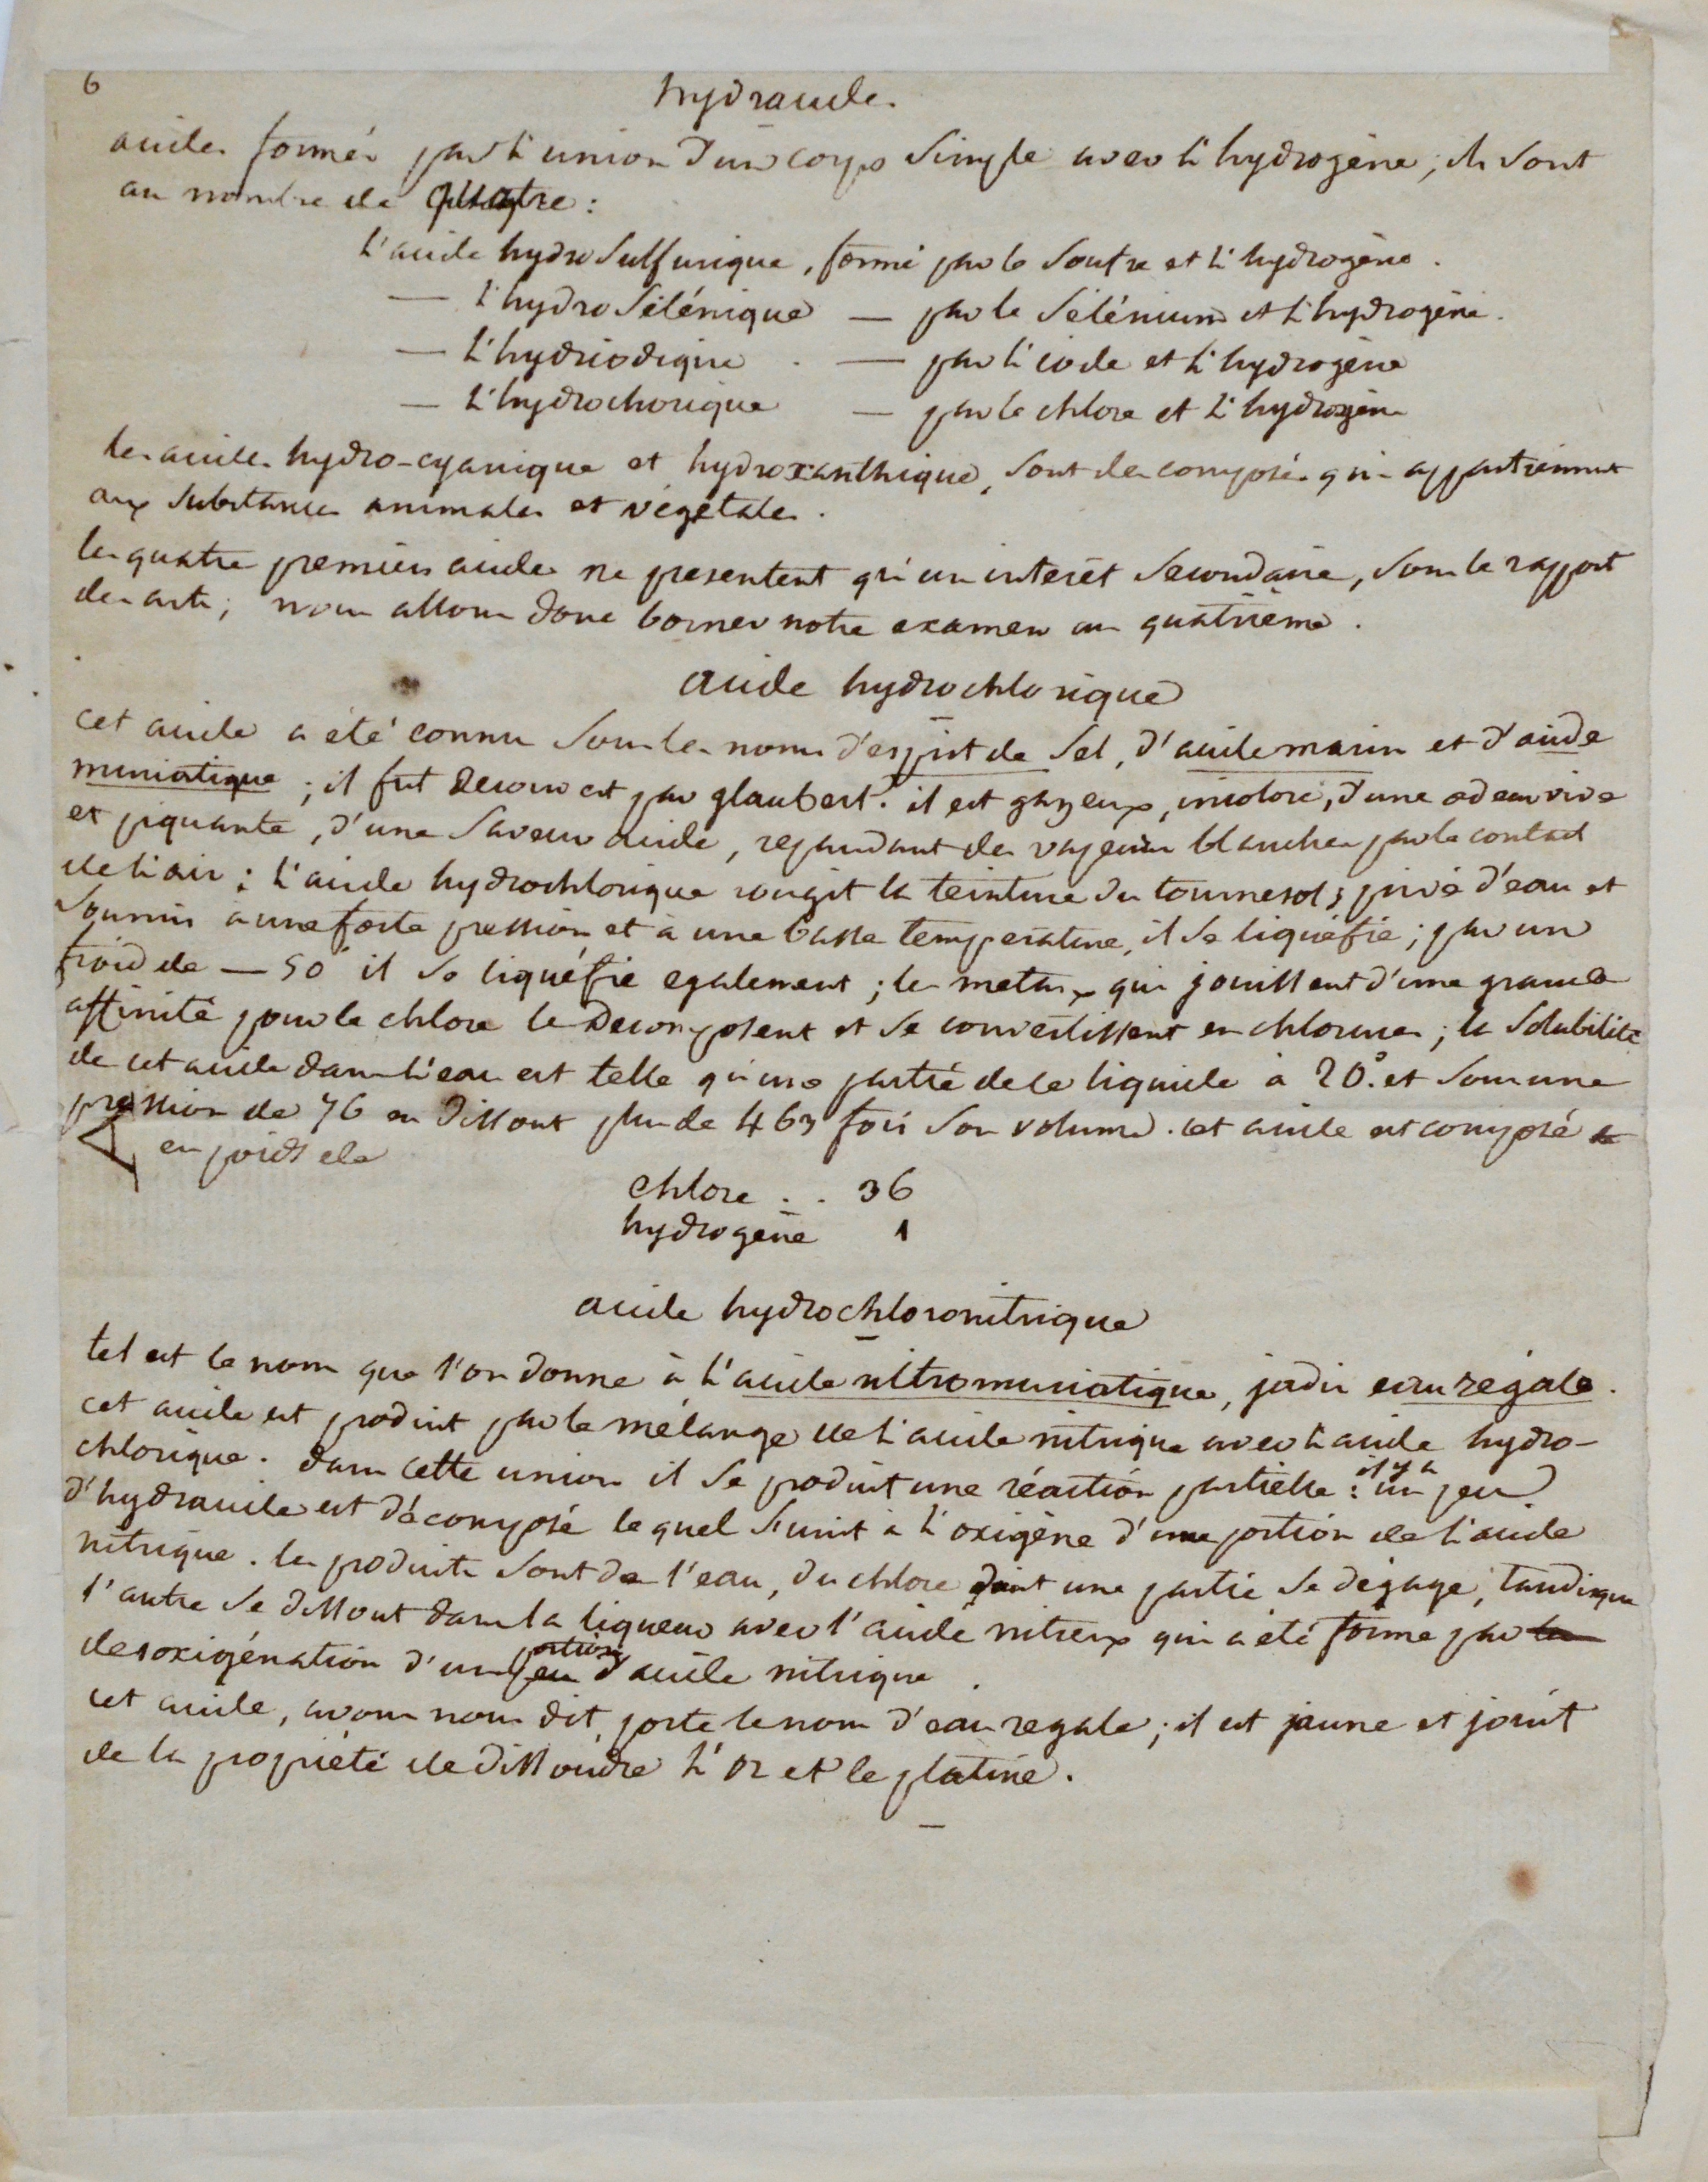 6
hydracides
acides formés par l'union d'un corps simple avec l'hydrogène; ils sont
au nombre de quatre :
l'acide hydrosulfurique, formé par le soufre et l'hydrogène.
— l'hydrosélénique — par le sélénium et l'hydrogène.
— l'hydriodique . — par l'iode et l'hydrogène
— l'hydrochorique — par le chlore et l'hydrogène
les acides hydro-cyanique et hydroxanthique, sont des composés qui appartiennent
aux substances animales et végétales.
les quatre premiers acides ne presentent qu'un interêt secondaire, sous le rapport
des arts; nous allons donc borner notre examen au quatrième.
acide hydrochlorique
cet acide a été connu sous les noms d'esprit de sel, d'acide marin et d'acide
muriatique; il fut decouvert par glaubert. il est gazeux, incolore, d'une odeur vive
et piquante, d'une saveur acide, repandant des vapeurs blanches par le contact
de l'air : l'acide hydrochlorique rougit la teinture du tournesol; privé d'eau et
soumis à une forte pression et à une basse temperature, il se liquéfie; par un
froid de — 50° il se liquéfie egalement; les metaux qui jouissent d'une grande
affinité pour le chlore le decomposent et se convertissent en chlorures; la solubilité
de cet acide dans l'eau est telle qu'une partie de ce liquide à 20.° et sous une
pression de 76 en dissout plus de 463 fois son volume. cet acide est composé de
en poids de
chlore . . 36
hydrogène 1
acide hydrochloronitrique
tel est le nom que l'on donne à l'acide nitromuriatique, jadis eau régale.
cet acide est produit par le mélange de l'acide nitrique avec l'acide hydro-
chlorique. dans cette union il se produit une réaction partielle : il y a un peu
d'hydracide est décomposé lequel s'unit à l'oxigène d'une portion de l'acide
nitrique. les produits sont de l'eau, du chlore dont une partie se dégage, tandisque
l'autre se dissout dans la liqueur avec l'acide nitreux qui a été formé par la
desoxigénation d'un peu portion d'acide nitrique.
cet acide, avons nous dit, porte le nom d'eau regale; il est jaune et jouit
de la propriété de dissoudre l'or et le platine.